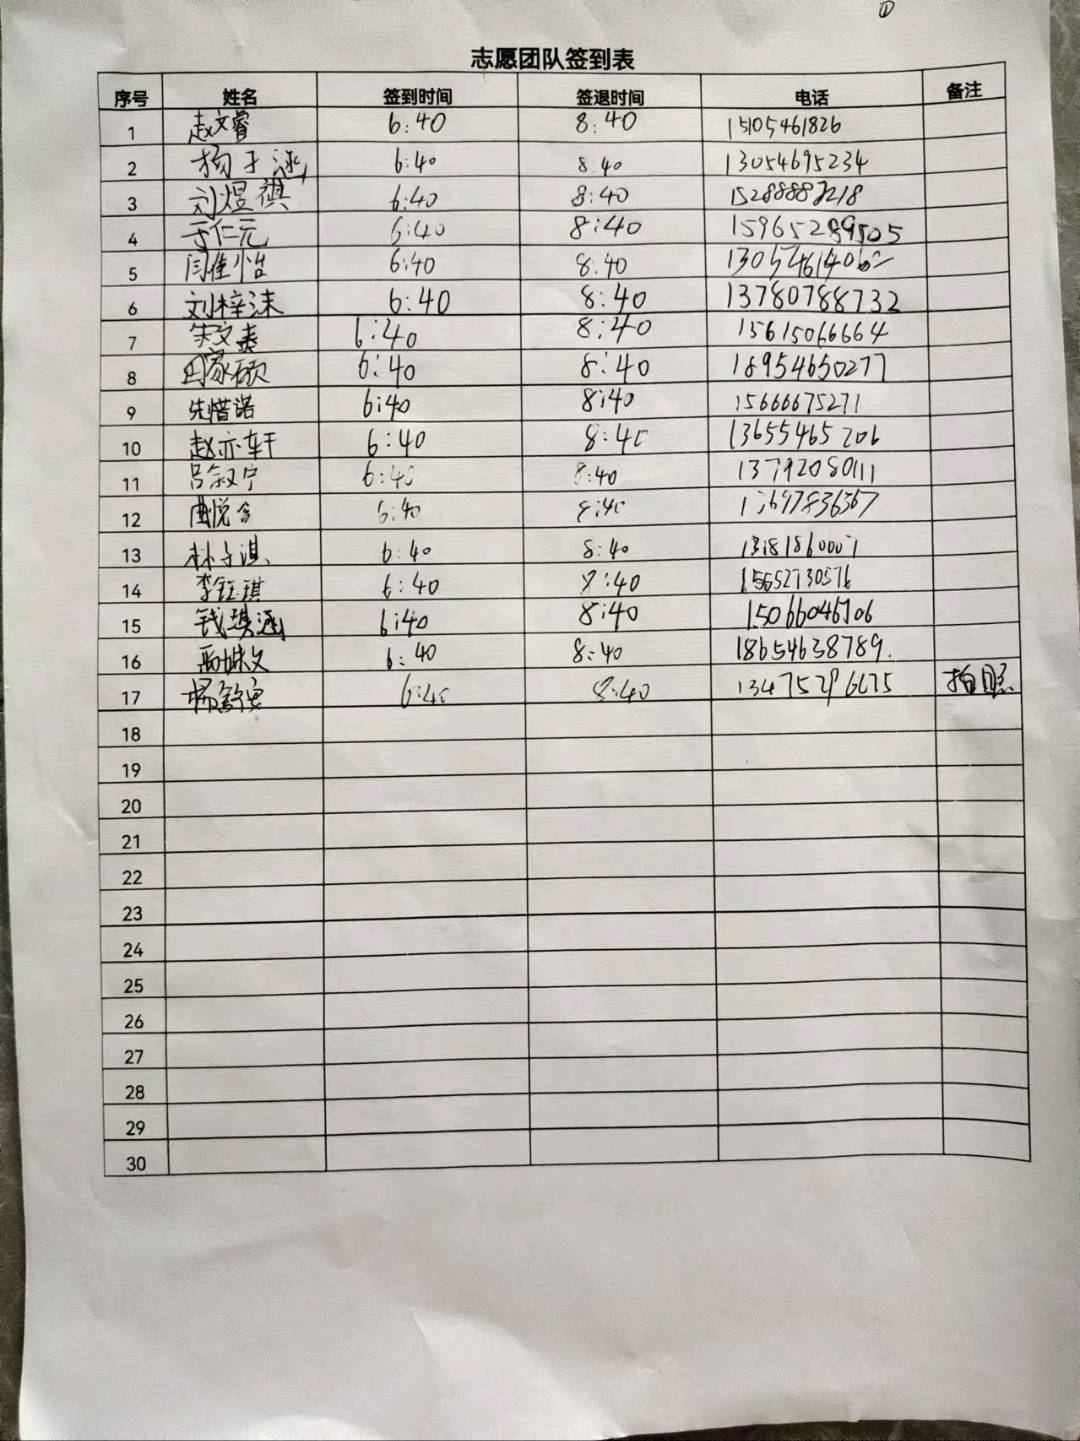 ①
志愿团队签到表
序号 姓名 签到时间 签退时间 电话 备注
1 赵文睿 6:40 8:40 15105461826
2 杨子涵 6:40 8:40 13054695234
3 刘煜祺 6:40 8:40
4 于仁元 6:40 8:40 15965289505
5 闫佳怡 6:40 8:40
6 刘梓沫 6:40 8:40 13780788732
7 朱文泰 6:40 8:40 15615066664
8 周家硕 6:40 8:40 18954650277
9 先惜诺 6:40 8:40 15666675271
10 赵亦轩 6:40 8:40 13655465206
11 吕叙宁 6:40 8:40 13792080111
12 曲悦含 6:40 8:40
13 林子淇 6:40 8:40
14 李钰琪 6:40 8:40
15 钱琪涵 6:40 8:40
16 6:40 8:40 18654638789.
17 杨舒安 6:40 8:40 拍照
18
19
20
21
22
23
24
25
26
27
28
29
30